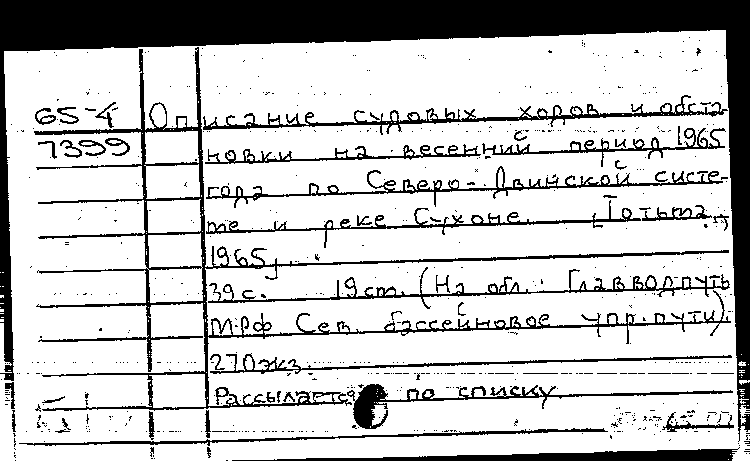 65-4 Описание судовых ходов и обста-
7399 новки на весенний период 1965
года по Северо-Двинской систе-
ме и реке Сухоне. [Тотьма,
1965].
39 с. 19 см. (На обл.: Главводпуть
МРФ Сев. бассейновое упр. пути).
270 экз.
Рассылается по списку